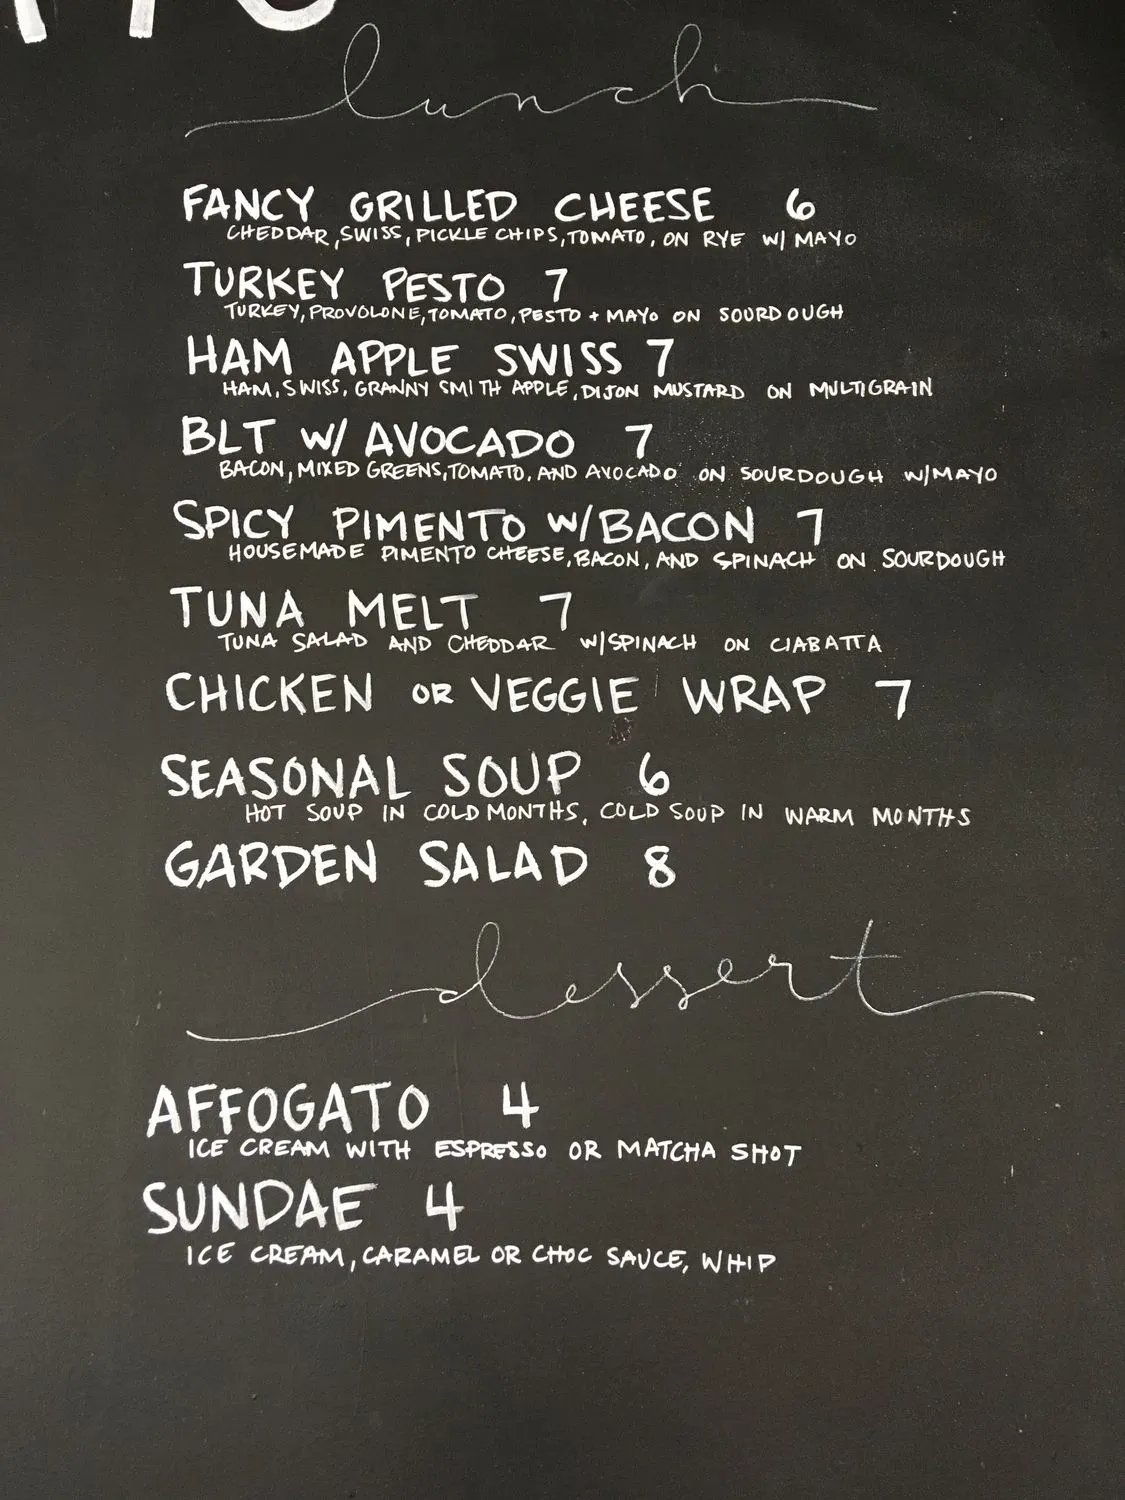 lunch
FANCY GRILLED CHEESE 6
CHEDDAR, SWISS, PICKLE CHIPS, TOMATO, ON RYE W/ MAYO
TURKEY PESTO 7
TURKEY, PROVOLONE, TOMATO, PESTO + MAYO ON SOURDOUGH
HAM APPLE SWISS 7
HAM, SWISS, GRANNY SMITH APPLE, DIJON MUSTARD ON MULTIGRAIN
BLT W/ AVOCADO 7
BACON, MIXED GREENS, TOMATO, AND AVOCADO ON SOURDOUGH W/MAYO
SPICY PIMENTO W/BACON 7
HOUSEMADE PIMENTO CHEESE, BACON, AND SPINACH ON SOURDOUGH
TUNA MELT 7
TUNA SALAD AND CHEDDAR W/SPINACH ON CIABATTA
CHICKEN OR VEGGIE WRAP 7
SEASONAL SOUP 6
HOT SOUP IN COLD MONTHS, COLD SOUP IN WARM MONTHS
GARDEN SALAD 8
dessert
AFFOGATO 4
ICE CREAM WITH ESPRESSO OR MATCHA SHOT
SUNDAE 4
ICE CREAM, CARAMEL OR CHOC SAUCE, WHIP